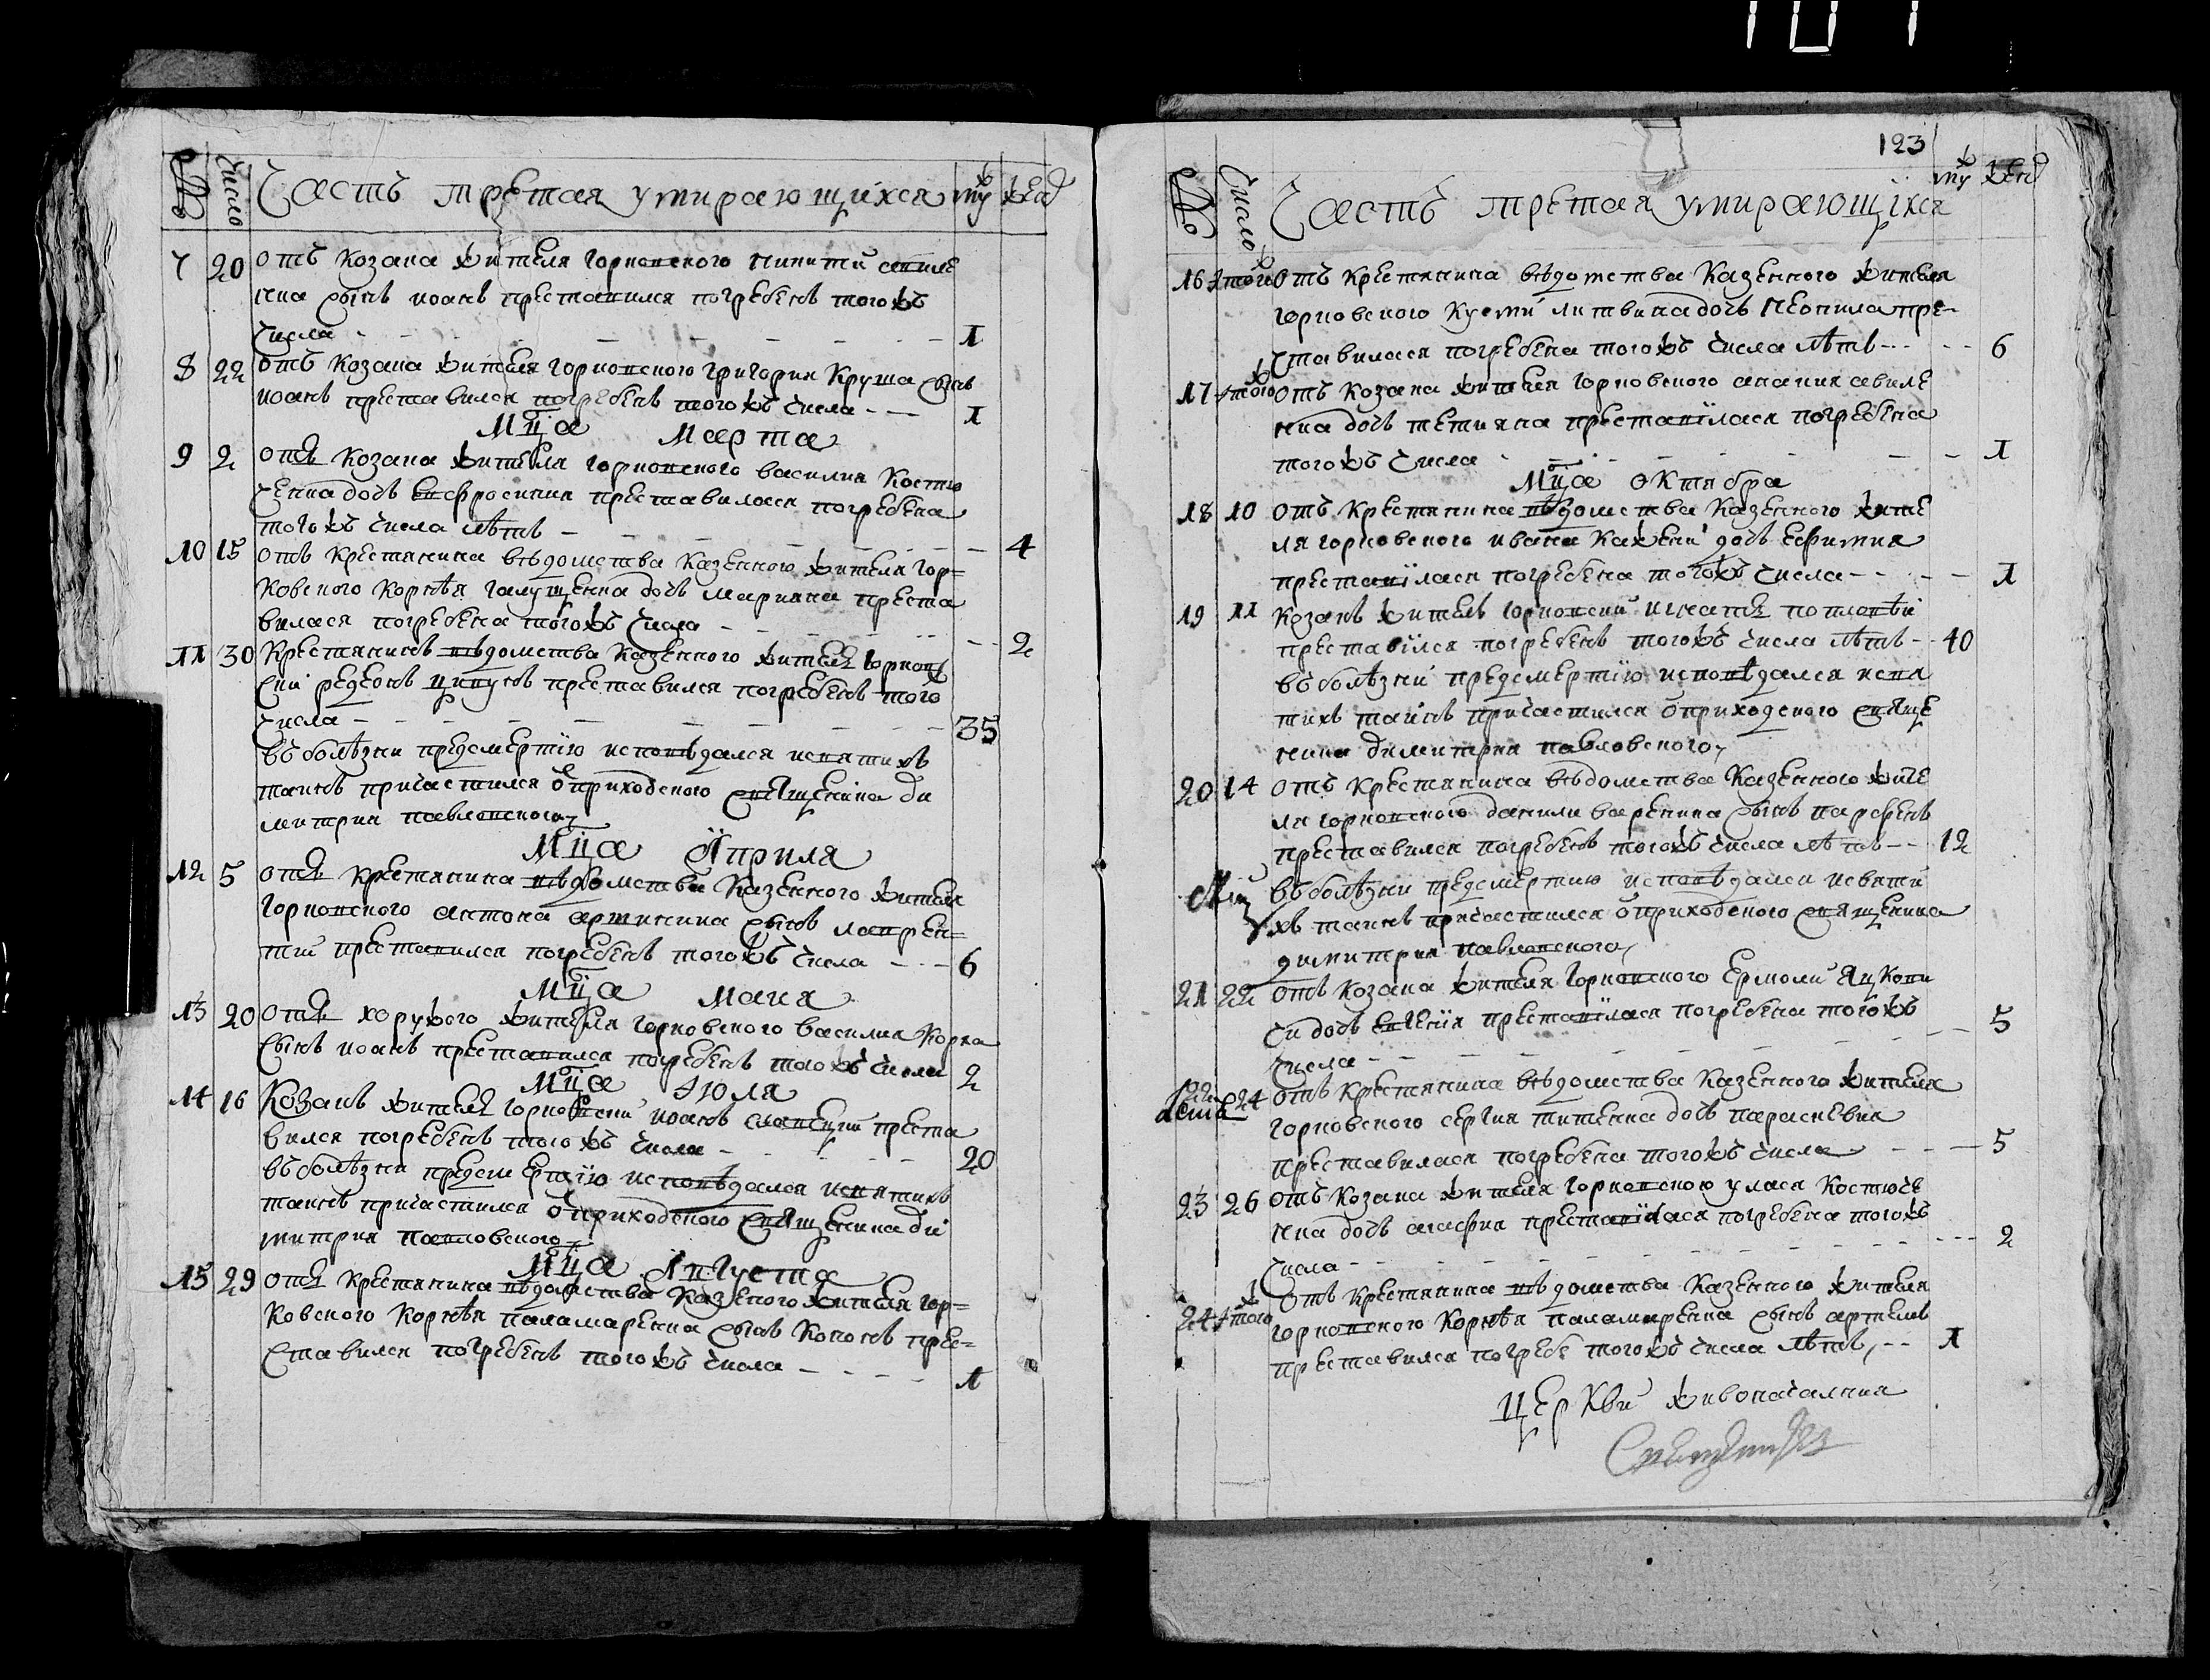 № Число Часть третая умирающихся му жен
7 20 отъ козака жителя горковского никити
сынъ иоанъ преставился погребенъ тогожъ
числа - - - - - 1
8 22 отъ козака жителя горковского григория Круша сынъ
иоанъ преставился погребенъ тогожъ числа - - 1
Мца Марта
9 2 отъ козака жителя горковского василия Костю
ченка дочь евфросиния преставилася погребена
тогожъ числа лѣтъ - - - 4
10 15 отъ крестянина вѣдомства казенного жителя гор=
ковского корнѣя галущенка дочь марияна преста
вилася погребена тогожъ числа - - 2
11 30 Крестянинъ вѣдомства казенного житель горков
ский преставился погребенъ того
числа - - - 35
въ болѣзни предсмертїю исповѣдался исвятихъ
таинъ причастился от приходского священика ди
митрия павловского
Мца Априля
12 5 отъ крестянина вѣдомства казенного жителя
горковского антона сынъ лаврен=
тий преставился погребенъ тогожъ числа - - - 6
Мца Маия
13 20 отъ хоружого жителя горковского василия Корха
сынъ иоанъ преставился погребенъ тогожъ числа 2
Мца Июля
14 16 Козакъ житель горковский иоанъ преста
вился погребенъ тогожъ числа - - - 20
въ болѣзни предсмертїю исповѣдался исвятихъ
таинъ причастился от приходского священика ди
митрия павловского
Мца Августа
15 29 отъ крестянина вѣдомства казенного жителя гор=
ковского Корнѣя паламаренка сынъ Кононъ пре=
ставился погребенъ тогожъ числа - - - - 1
123
№ Число Часть третая умирающїхся му жен
16 того отъ крестянина вѣдомства казенного жителя
горковского Кузми литвина дочь пре-
ставилася погребена тогожъ числа лѣтъ - - - 6
17 того отъ козака жителя горковского анания авиле
нка дочь тетияна преставїлася погребена
тогожъ числа - - - 1
Мца октября
18 10 отъ крестянина вѣдомства казенного жите
ля горковского ивана дочь евфимия
преставїлася погребена тогожъ числа - - - 1
19 11 Козакъ житель горковский игнатъ
преставїлся погребенъ тогожъ числа лѣтъ - - 40
въ болѣзни предсмертїю исповѣдался исвя
тихъ таинъ причастился от приходского священ
ника димитрия павловского
20 14 отъ крестянина вѣдомства казенного жите
ля горковского данили вареника сынъ парфенъ
преставился погребенъ тогожъ числа лѣтъ - - 12
въ болѣзни предсмертию исповѣдался исвяти
хъ таинъ причастился от приходского священика
димитрия павловского
21 22 отъ козака жителя горковского Ермоли
дочь евгения преставїлася погребена тогожъ
числа - - - 5
22 24 отъ крестянина вѣдомства казенного жителя
горковского сергия титенка дочь параскевия
преставилася погребена тогожъ числа - - - 5
23 26 отъ козака жителя горковского уласа Костюче
нка дочь агафия преставїлася погребена тогожъ
числа - - - 2
24 того отъ крестянина вѣдомства казенного жителя
горковского Корнѣя паламаренка сынъ артемъ
преставился погребе тогожъ числа лѣтъ, - - 1
церкви живоначалния